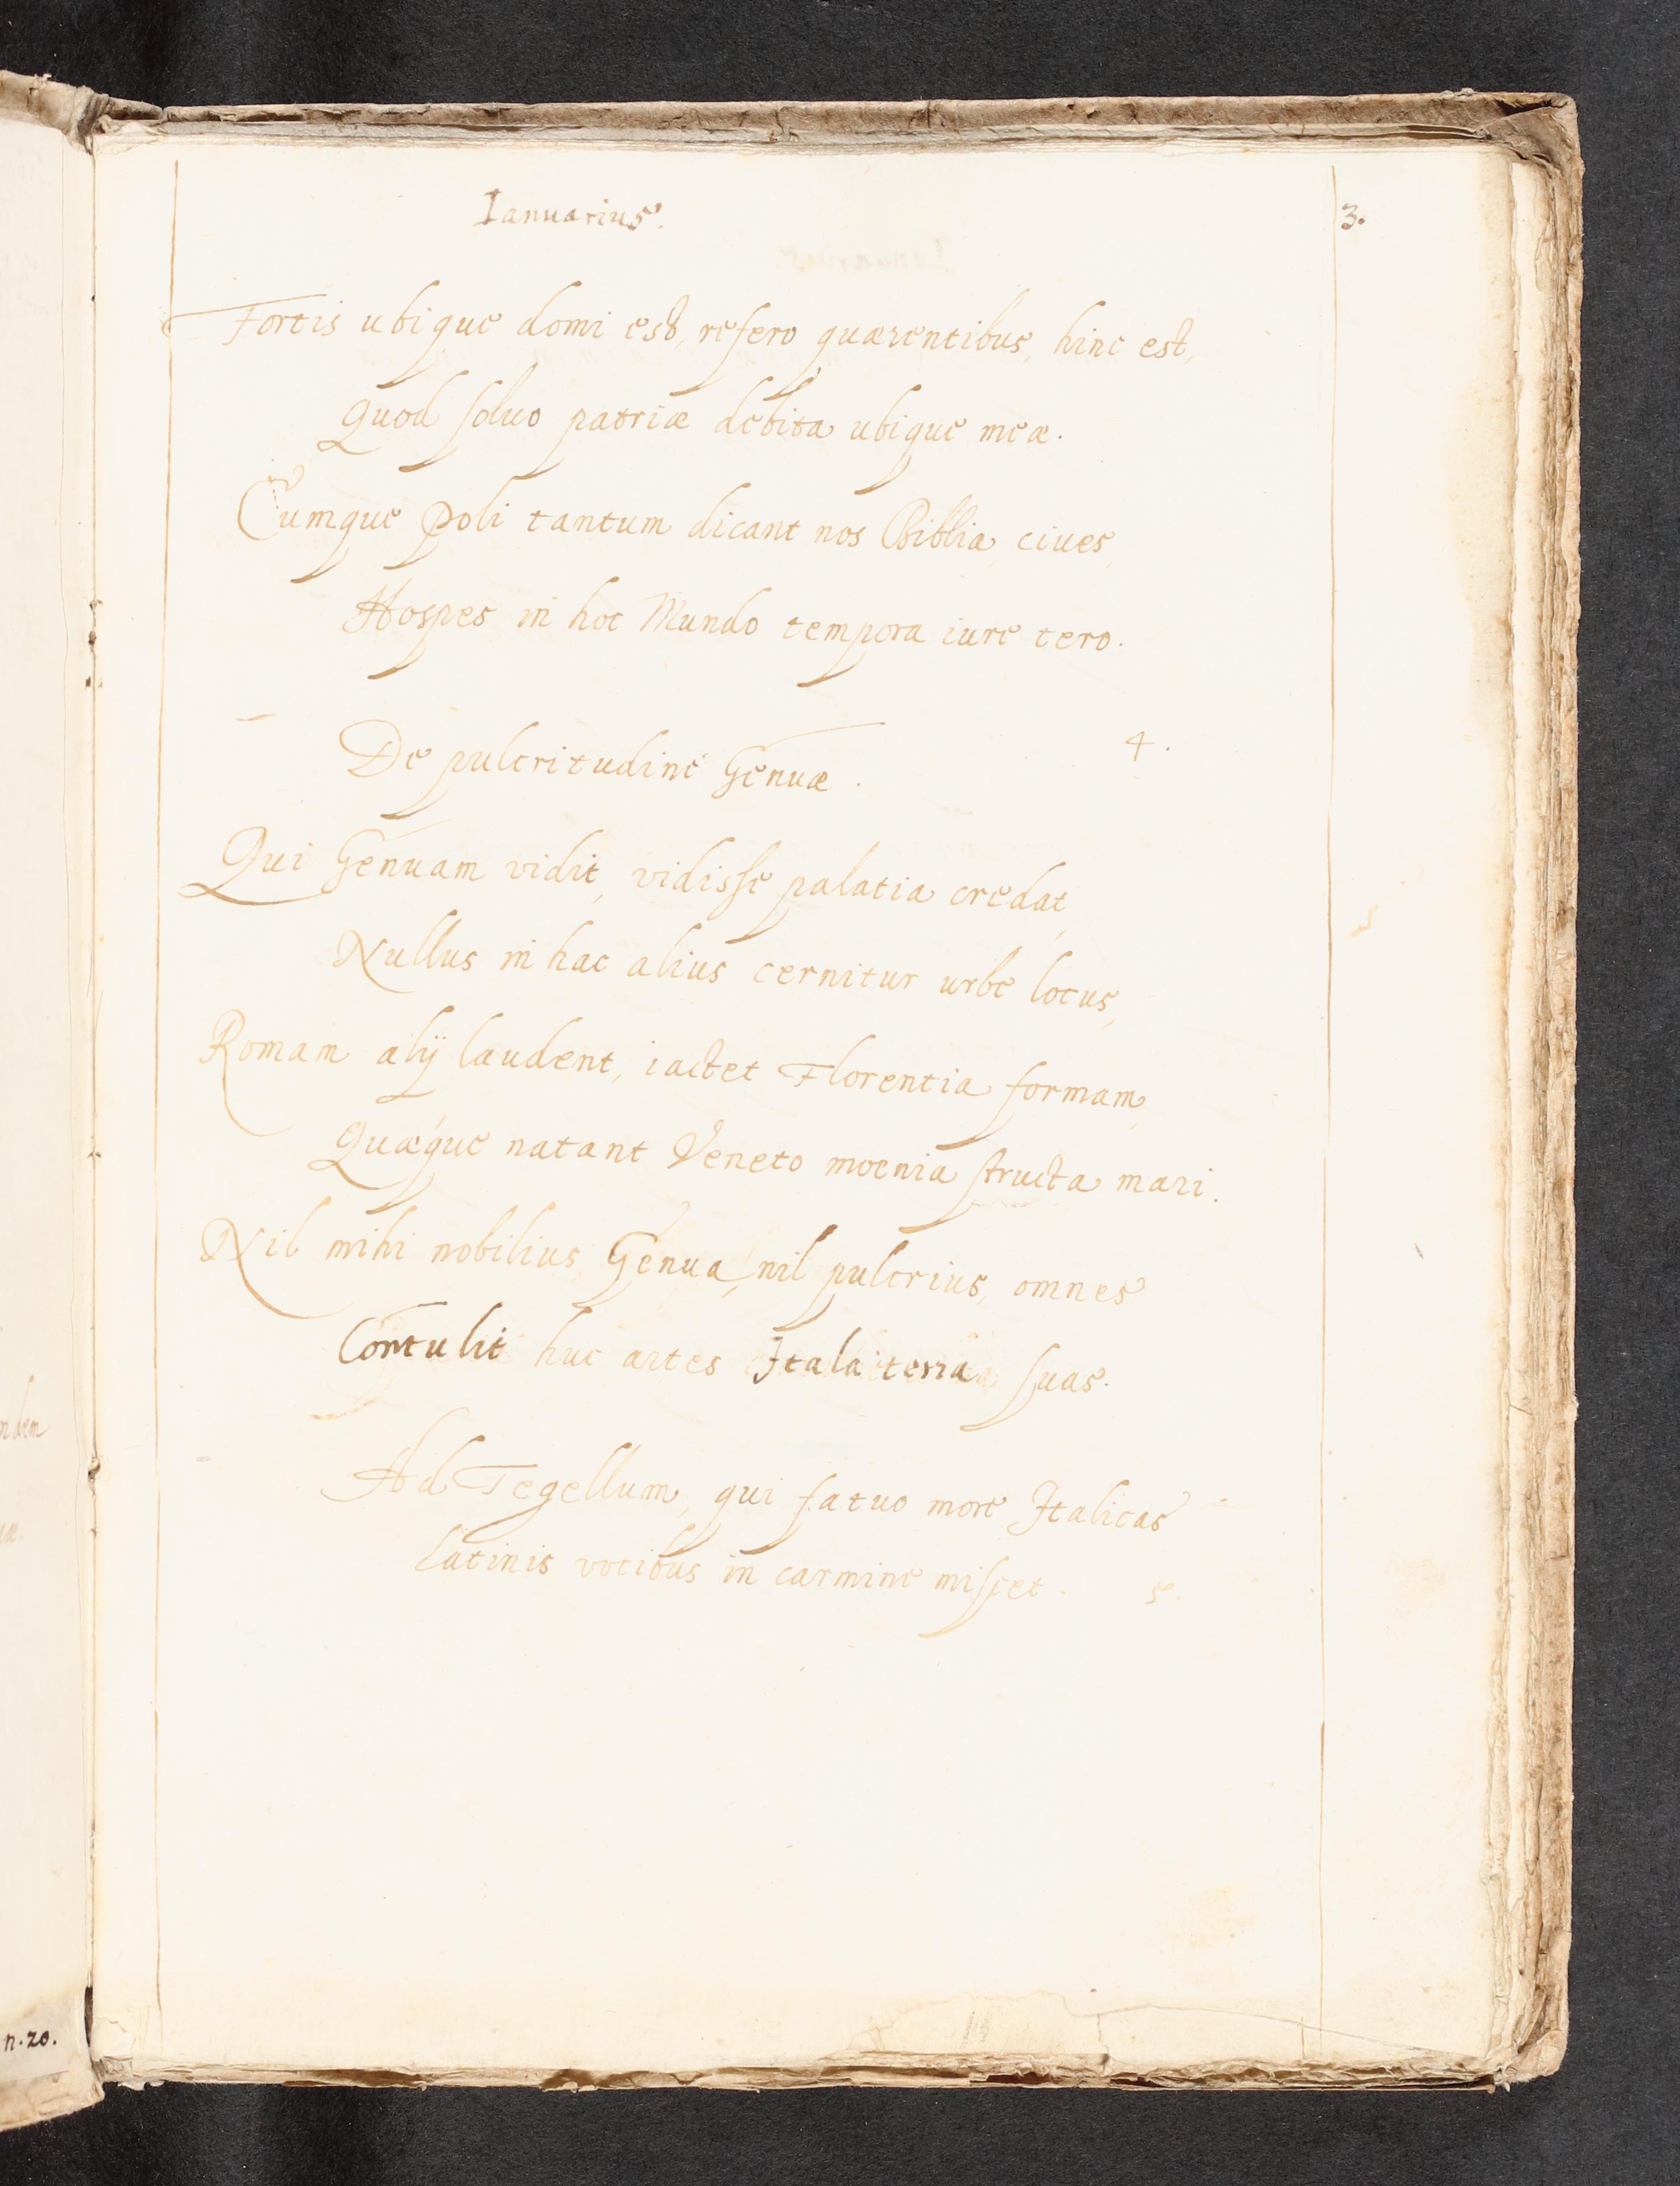 Ianuarius.
3.
Fortis ubique domi est, refero quærentibus, hinc est,
Quod soluo patriæ debita ubique meæ.
Cumque Poli tantum dicant nos Biblia, ciues,
Hospes in hoc Mundo tempora iure tero.
De pulcritudine Genuæ.
4.
Qui Genuam vidit, vidisse palatia credat,
Nullus in hac alius cernitur urbe locus,
Romam alij laudent, iactet Florentia formam,
Quæque natant Veneto moenia structa mari.
Nil mihi nobilius Genua, nil pulcrius, omnes
Contulit huc artes Itala terra suas.
Ad Tegellum, qui fatuo more Italicas
Latinis vocibus in carmine miscet.
5.
ndem
æ.
n.20.